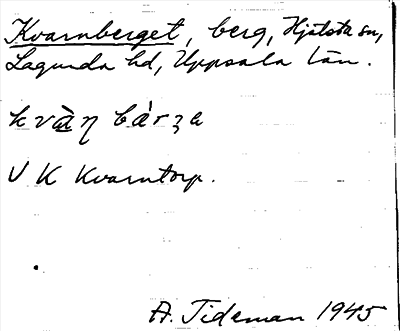 Kvarnberget, berg, Hjälsta sn,
Lagunda hd, Uppsala län.
kvàη bárʒe
V K Kvarntorp.
A. Tideman 1945